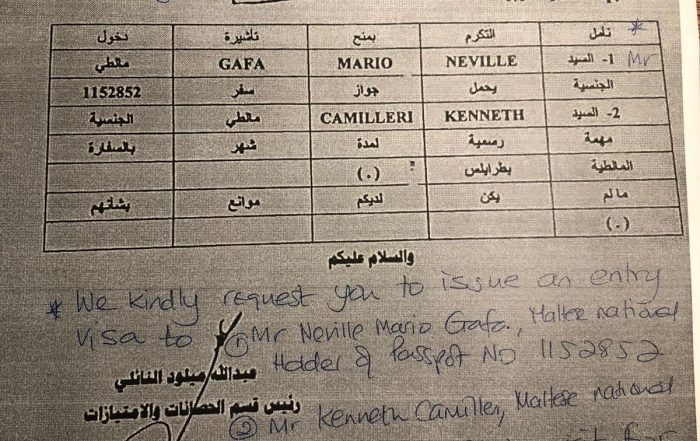 نأمل التكرم بمنح تأشيرة دخول *
1- السيد NEVILLE MARIO GAFA مالطي Mr
الجنسية يحمل جواز سفر 1152852
2- السيد KENNETH CAMILLERI مالطي الجنسية
مهمة رسمية لمدة شهر بالسفارة
المالطية بطرابلس (.)
ما لم يكن لديكم موانع بشأنهم
(.)
والسلام عليكم
* We kindly request you to issue an entry
visa to ① Mr Neville Mario Gafa, Maltese national
Holder of Passport No 1152852
عبدالله ميلود
رئيس قسم الحصانات والامتيازات
② Mr Kenneth Camilleri, Maltese national